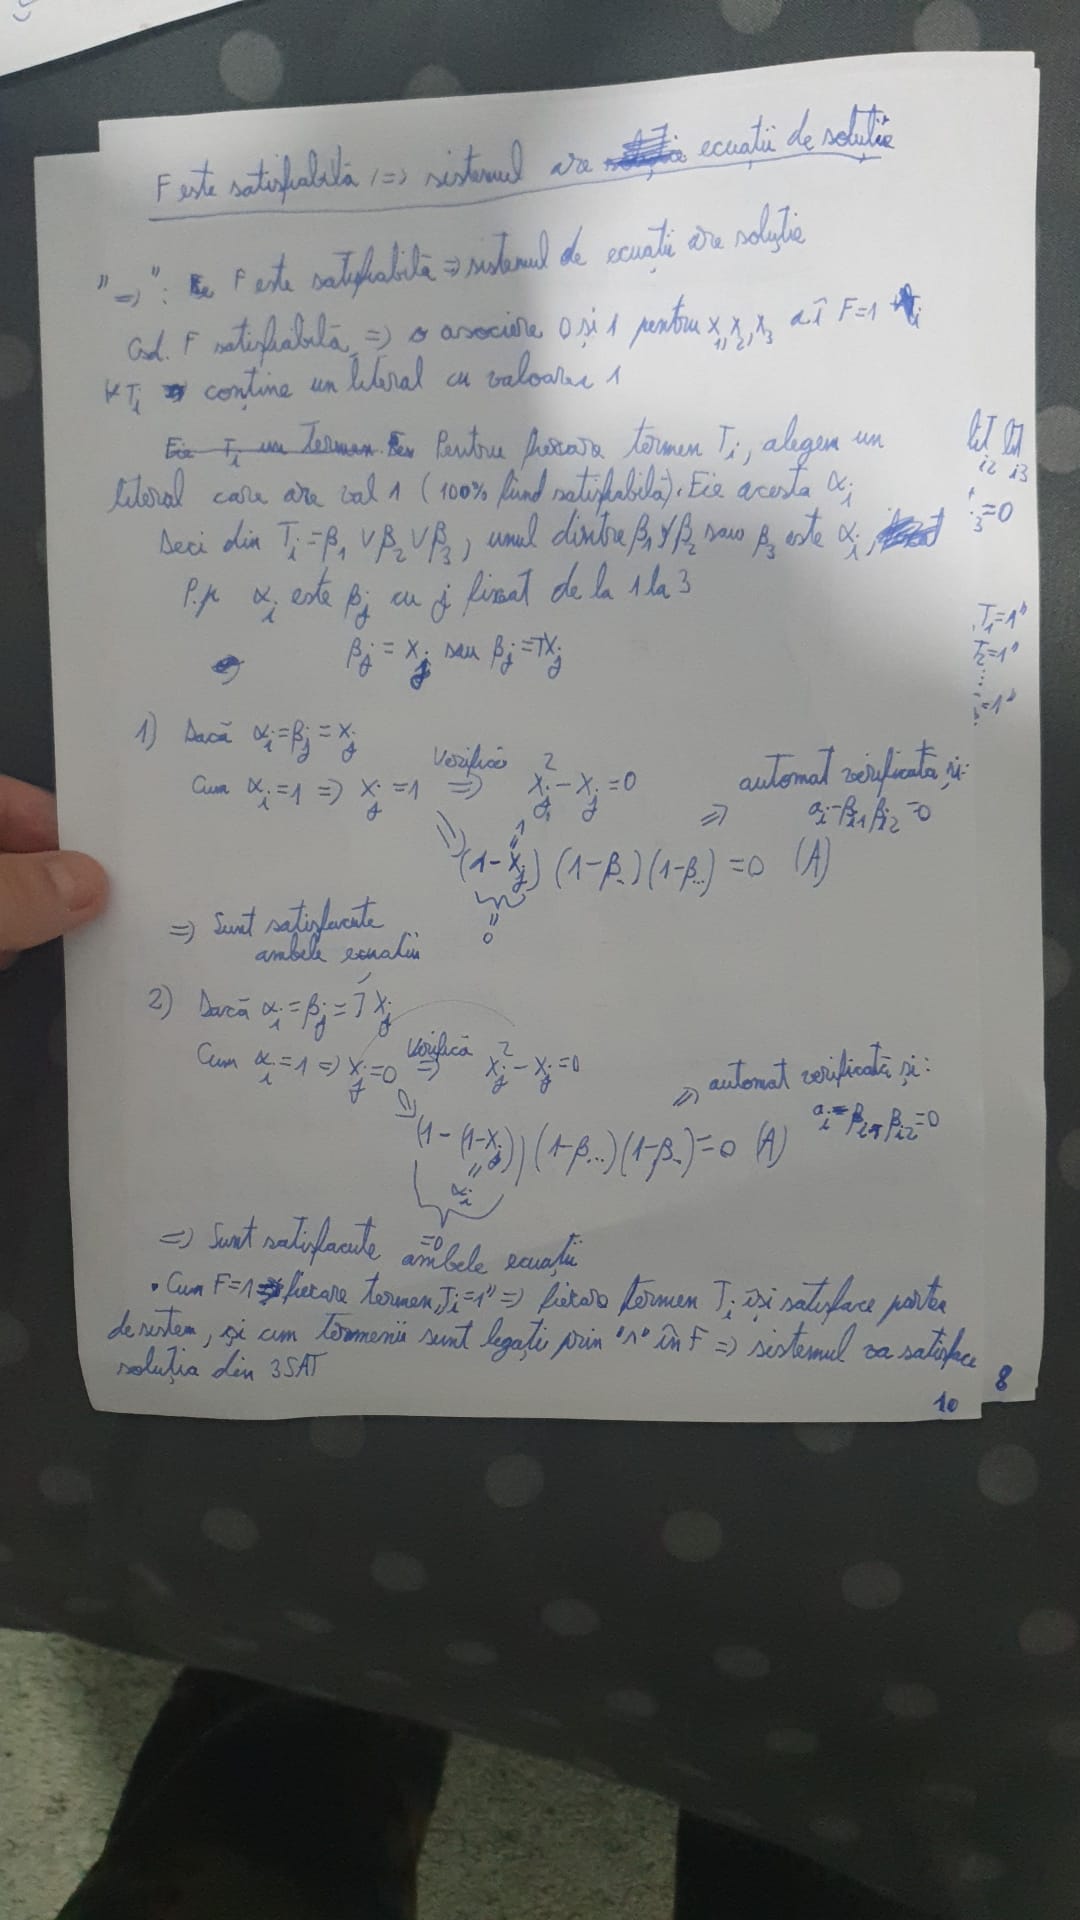 F este satisfiabilă (=) sistemul are ecuații de soluție
"=>": F este satisfiabilă => sistemul de ecuații are soluție
Cד. F satisfiabilă => o asociere 0 și 1 pentru x₁, x₂, x₃ a.î F=1
∀Tᵢ conține un literal cu valoarea 1
Fie Tᵢ un termen. Pentru fiecare termen Tᵢ, alegem un
literal care are val 1 (100% fiind satisfiabilă). Fie acesta αᵢ
Deci din Tᵢ = β₁ ∨ β₂ ∨ β₃, unul dintre β₁, β₂ sau β₃ este αᵢ,
P.p αᵢ este βⱼ cu j fixat de la 1 la 3
βⱼ = xⱼ sau βⱼ = ꓶxⱼ
1) Dacă αᵢ = βⱼ = xⱼ
Cum αᵢ = 1 => xⱼ = 1 Verifică => xⱼ² - xⱼ = 0
=> automat verificată, și:
aᵢ - βᵢ₁ βᵢ₂ = 0
(1 - xⱼ) (1-β..) (1-β...) = 0 (A)
1
"
"
0
=> Sunt satisfăcute
ambele ecuații
2) Dacă αᵢ = βⱼ = ꓶxⱼ
Cum αᵢ = 1 => xⱼ = 0 Verifică => xⱼ² - xⱼ = 0
=> automat verificată și:
aᵢ - βᵢ₁ βᵢ₂ = 0
(1 - (1-xⱼ)) (1-β...) (1-β..) = 0 (A)
"
αᵢ
=0
=> Sunt satisfăcute ambele ecuații
• Cum F=1 => fiecare termen „Tᵢ=1" => fiecare termen Tᵢ își satisface partea
de sistem, și cum termenii sunt legați prin "∧" în F => sistemul va satisface
soluția din 3SAT
10
8
lit lit
i2 i3
=0
3
T₁=1"
T₂=1"
⋮
=1"